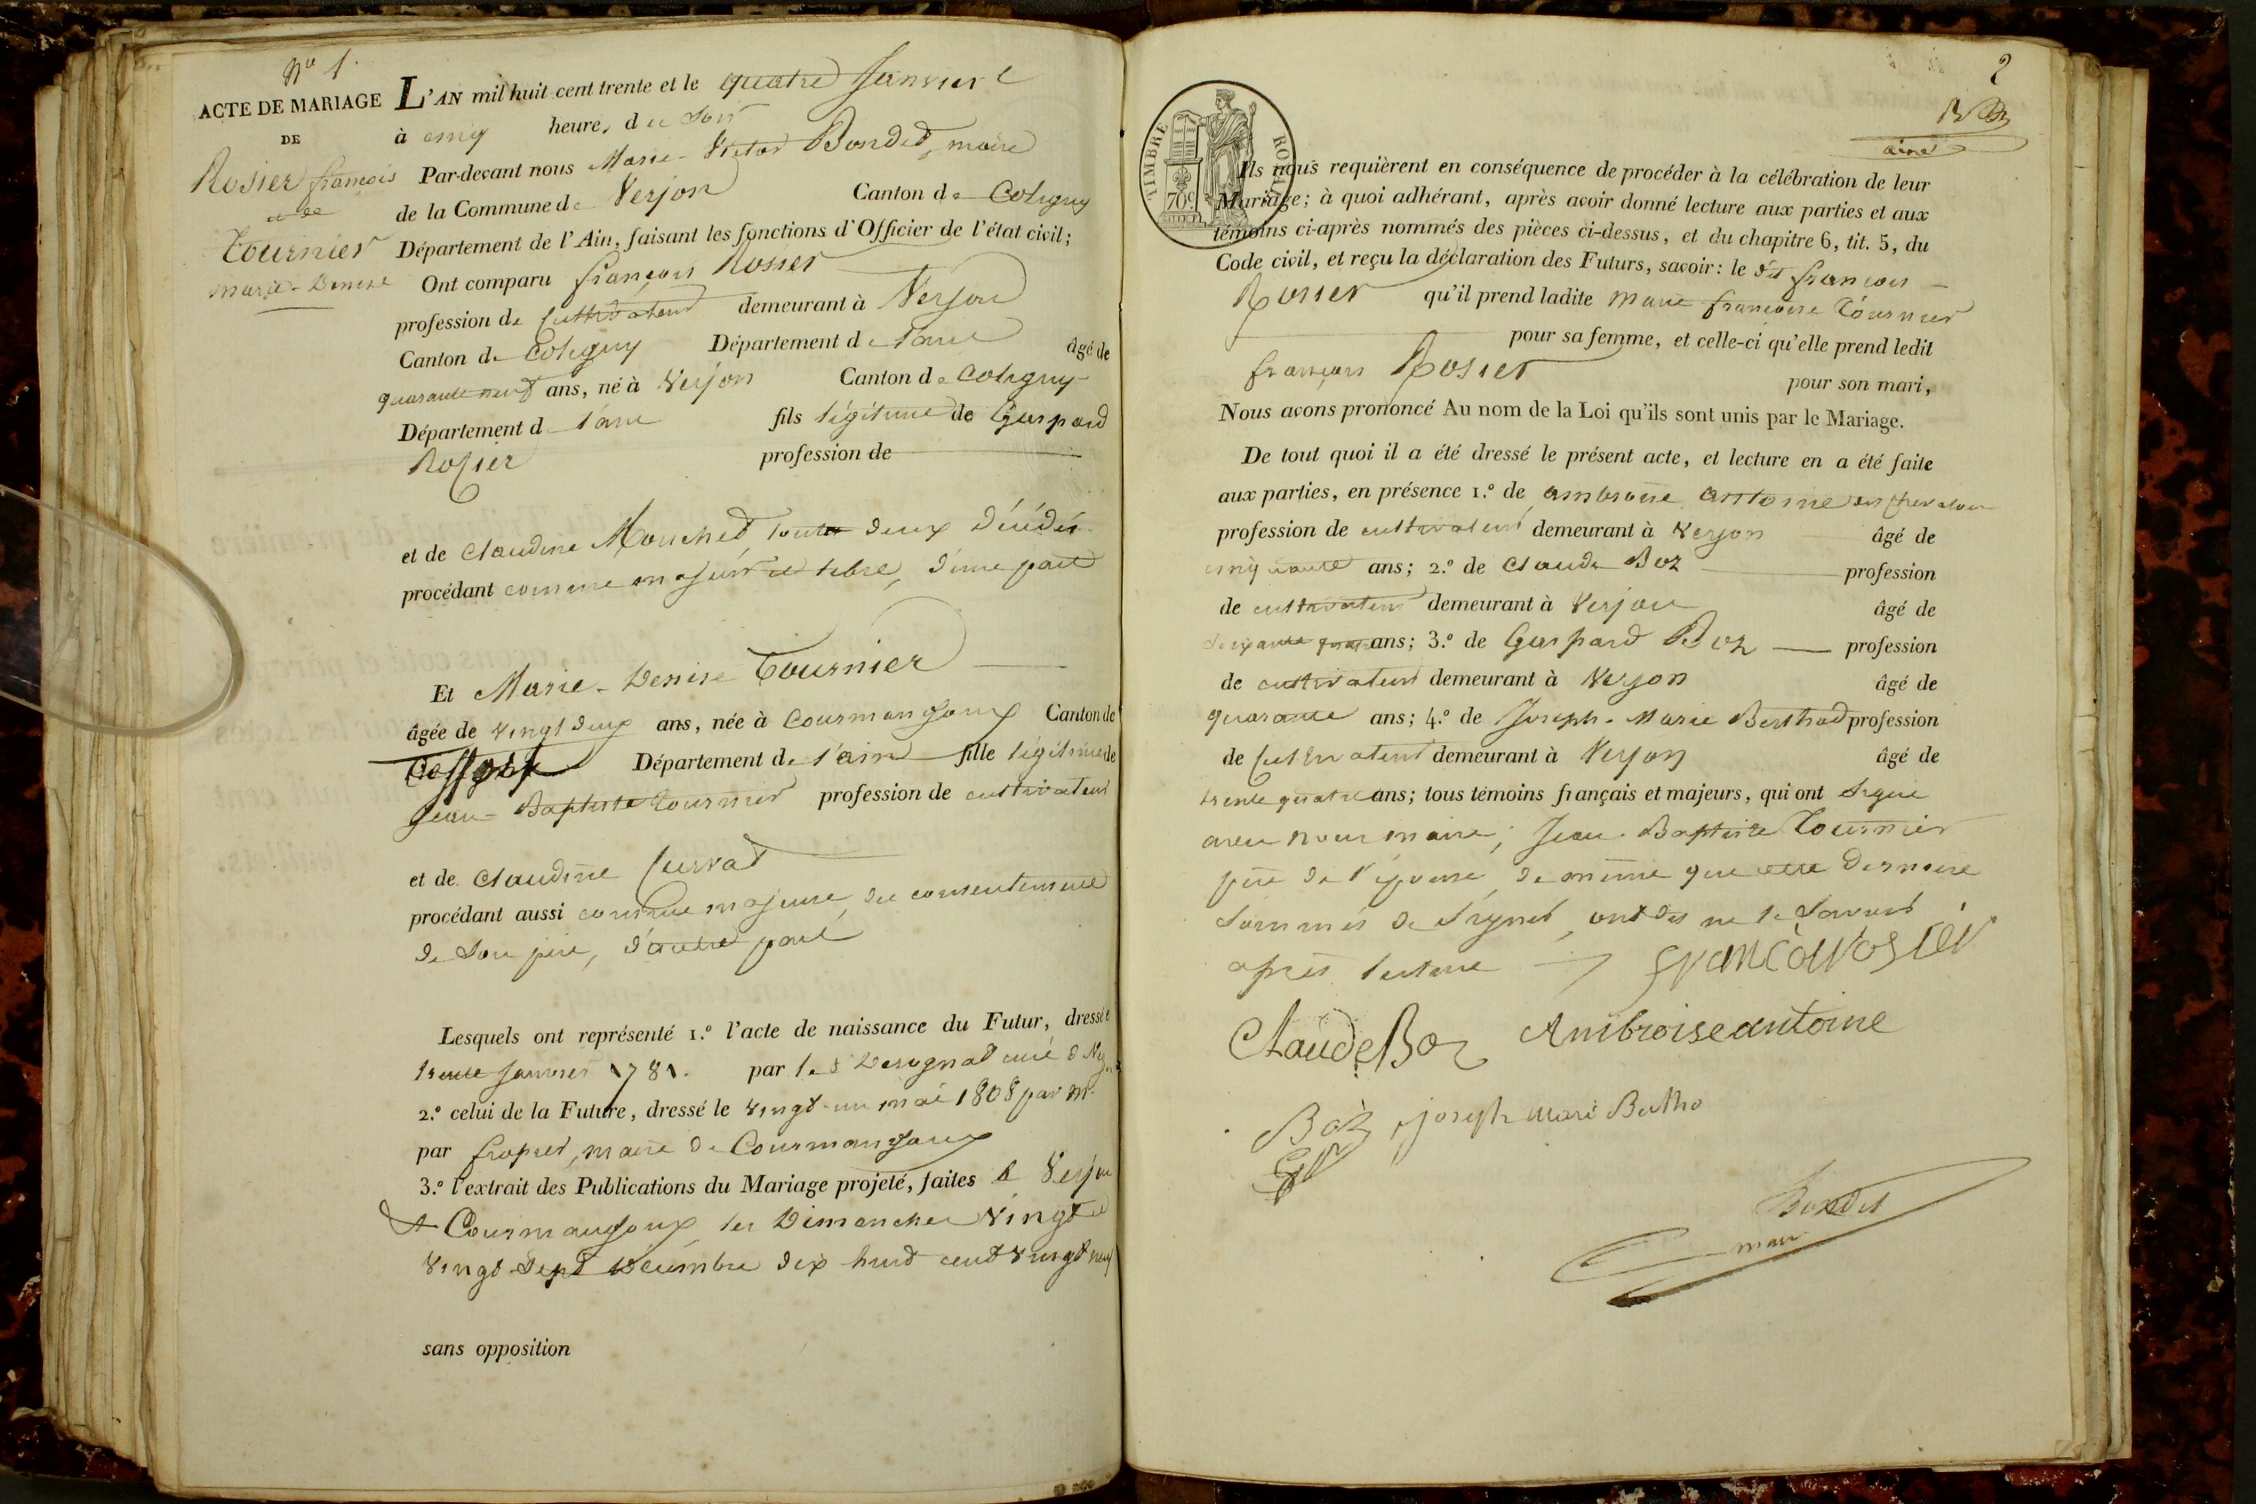 Nº 1.
ACTE DE MARIAGE
DE
Rosier françois
et de
Tournier
marie-Denise
L'AN mil huit cent trente et le quatre Janvier
à cinq heures du Soir
Par-devant nous Marie-Victor Bondet, maire
de la Commune de Verjon Canton de Coligny
Département de l'Ain, faisant les fonctions d'Officier de l'état civil;
Ont comparu françois Rosier
profession de Cultivateur demeurant à Verjon
Canton de Coligny Département de l'ain âgé de
quarante neuf ans, né à Verjon Canton de Coligny
Département de l'ain fils légitime de Gaspard
Rosier profession de
et de Claudine Mouchet tous deux décédés
procédant comme majeur et libre, d'une part
Et Marie-Denise Tournier
âgée de vingt deux ans, née à Courmangoux Canton de
Département de l'ain fille légitime de
Jean-Baptiste tournier profession de cultivateur
et de Claudine
procédant aussi comme majeure, du consentement
de Son père, d'autre part
Lesquels ont représenté 1.º l'acte de naissance du Futur, dressé le
trente Janvier 1781. par le S. curé de
2.º celui de la Future, dressé le vingt-un mai 1808 par Mr.
par maire de Courmangoux
3.º l'extrait des Publications du Mariage projeté, faites à Verjon
et Courmangoux les Dimanches vingt et
vingt-Sept Décembre dix huit cent vingt neuf
sans opposition
2
TIMBRE ROYAL
70c.
Ils nous requièrent en conséquence de procéder à la célébration de leur
Mariage; à quoi adhérant, après avoir donné lecture aux parties et aux
témoins ci-après nommés des pièces ci-dessus, et du chapitre 6, tit. 5, du
Code civil, et reçu la déclaration des Futurs, savoir: le dit françois
Rosier qu'il prend ladite marie françoise Tournier
pour sa femme, et celle-ci qu'elle prend ledit
françois Rosier pour son mari,
Nous avons prononcé Au nom de la Loi qu'ils sont unis par le Mariage.
De tout quoi il a été dressé le présent acte, et lecture en a été faite
aux parties, en présence 1.º de ambroise antoine
profession de cultivateur demeurant à Verjon âgé de
cinquante ans; 2.º de Claude Boz profession
de cultivateur demeurant à Verjon âgé de
soixante ans; 3.º de Gaspard Boz profession
de cultivateur demeurant à Verjon âgé de
quarante ans; 4.º de Joseph-Marie Berthod profession
de Cultivateur demeurant à Verjon âgé de
trente quatre ans; tous témoins français et majeurs, qui ont Signé
avec nous maire; Jean-Baptiste Tournier
père de l'épouse, de même que cette dernière
Sommés de Signer, ont dit ne le Savoir
après lecture francoi rosier
Claude Boz Ambroise antoine
Boz joseph marie Bertho
Bondet
maire